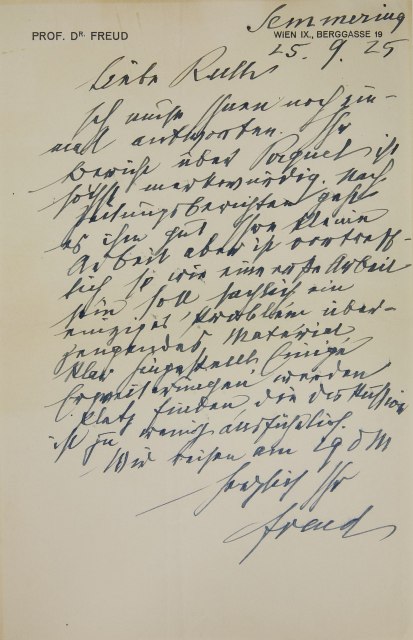 PROF. DR. FREUD
Semmering
WIEN IX., BERGGASSE 19
25. 9. 25
Liebe Ruth
Ich muß Ihnen noch ein-
mal antworten. Ihr
Bericht über Paquet ist
höchst merkwürdig. Nach
Zeitungsberichten geht
es ihm gut. Ihre kleine
Arbeit aber ist vortreff-
lich so wie eine erste Arbeit
sein soll sachlich ein
einziges Problem über-
zeugendes Material
klar hingestellt. Einige
Erweiterungen werden
Platz finden die Diskussion
ist zu wenig ausführlich.
Wir reisen am 29 d M
Herzlich Ihr
Freud